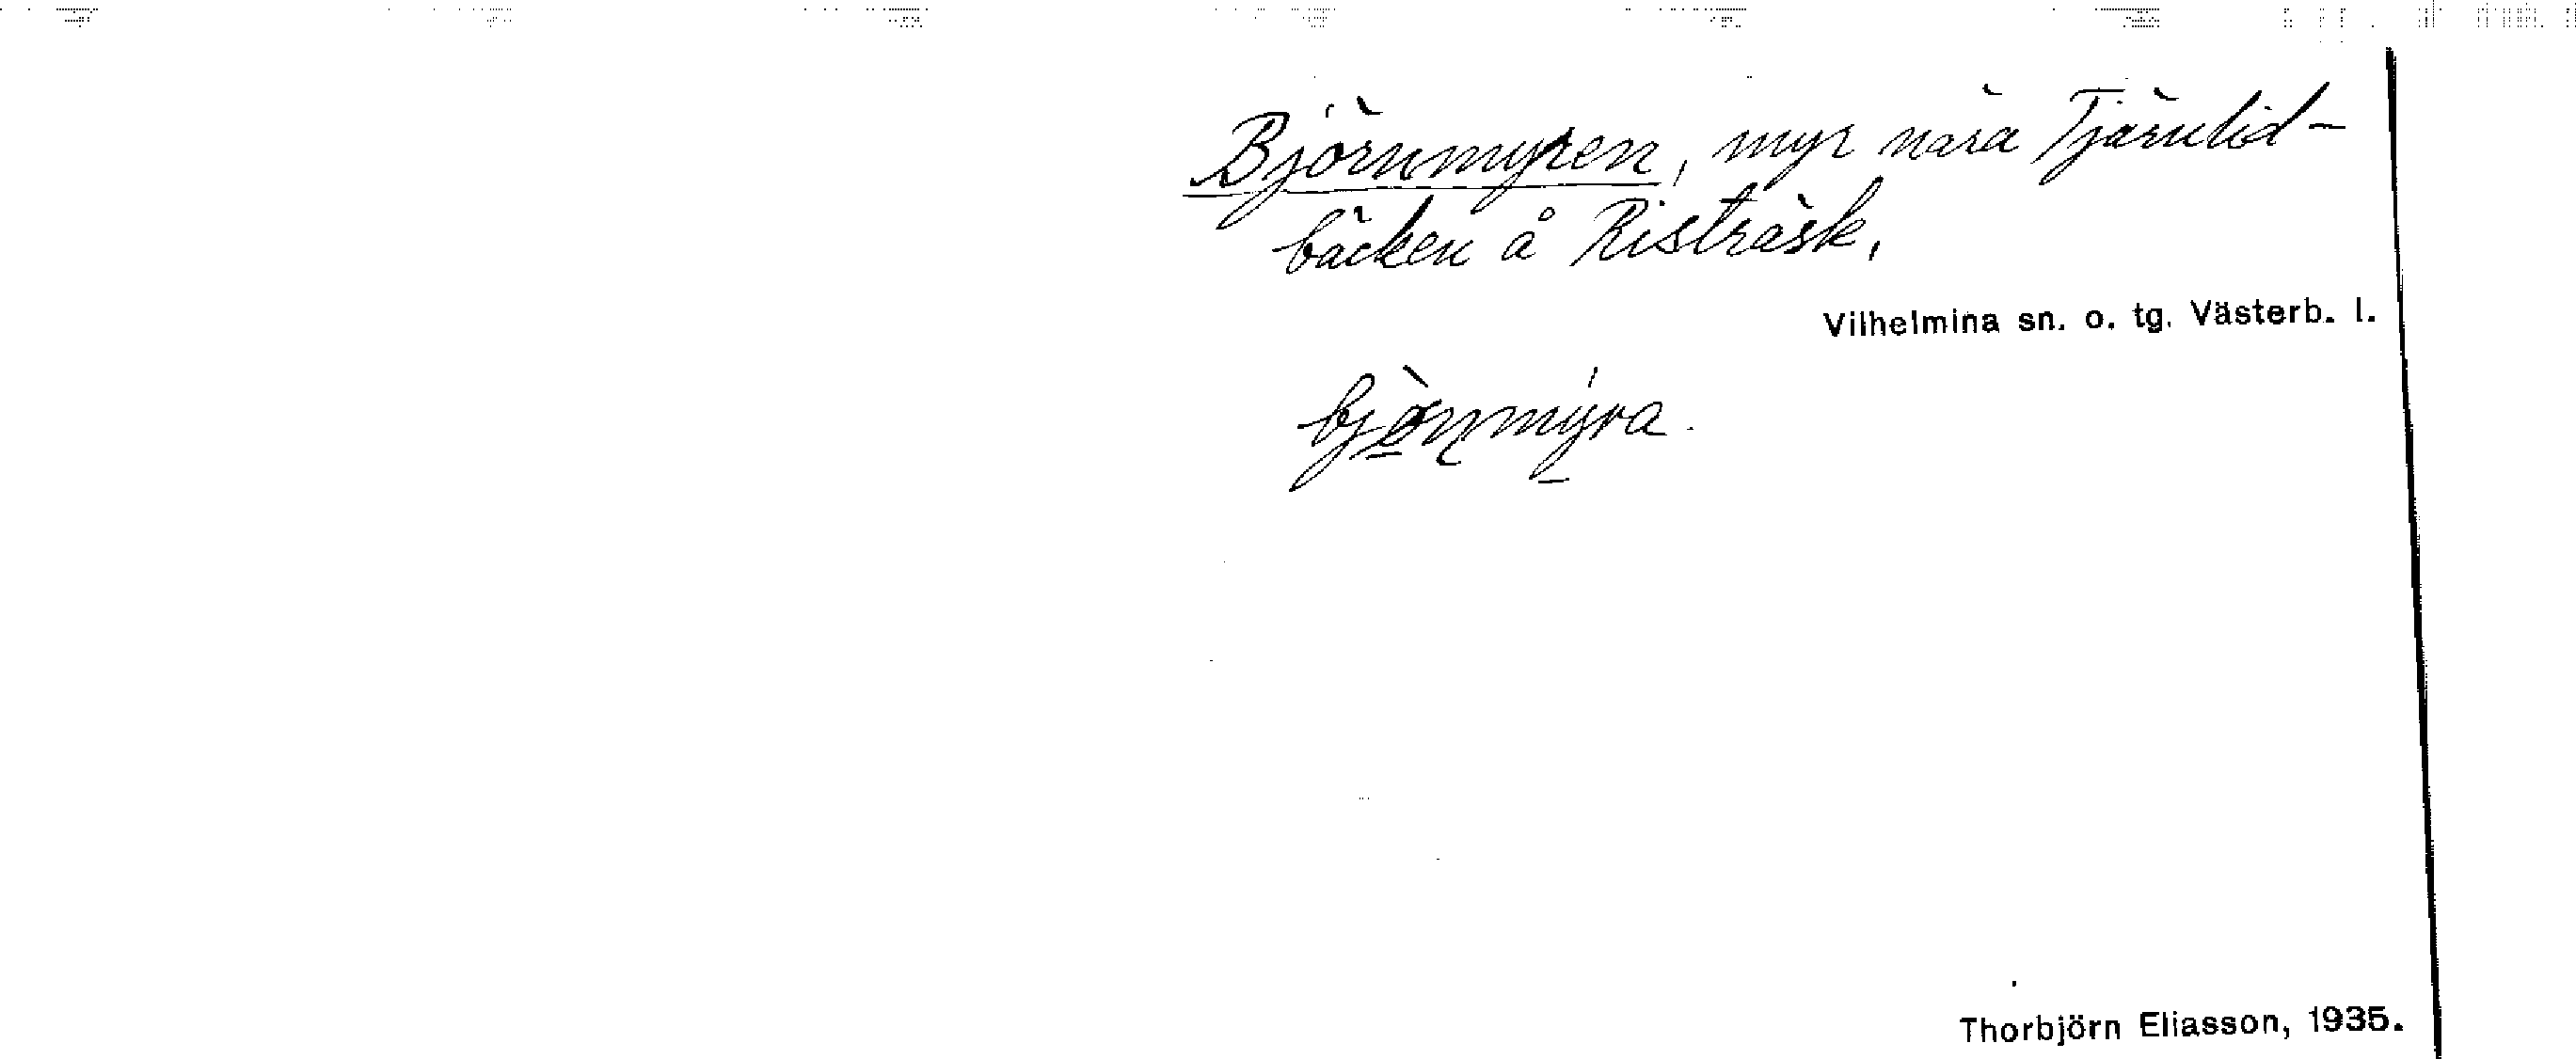 Björnmyren, myr nära Tjärnlid-
bäcken å Risträsk,
Vilhelmina sn. o. tg. Västerb. l.
bjö̀ṇmýra.
Thorbjörn Eliasson, 1935.